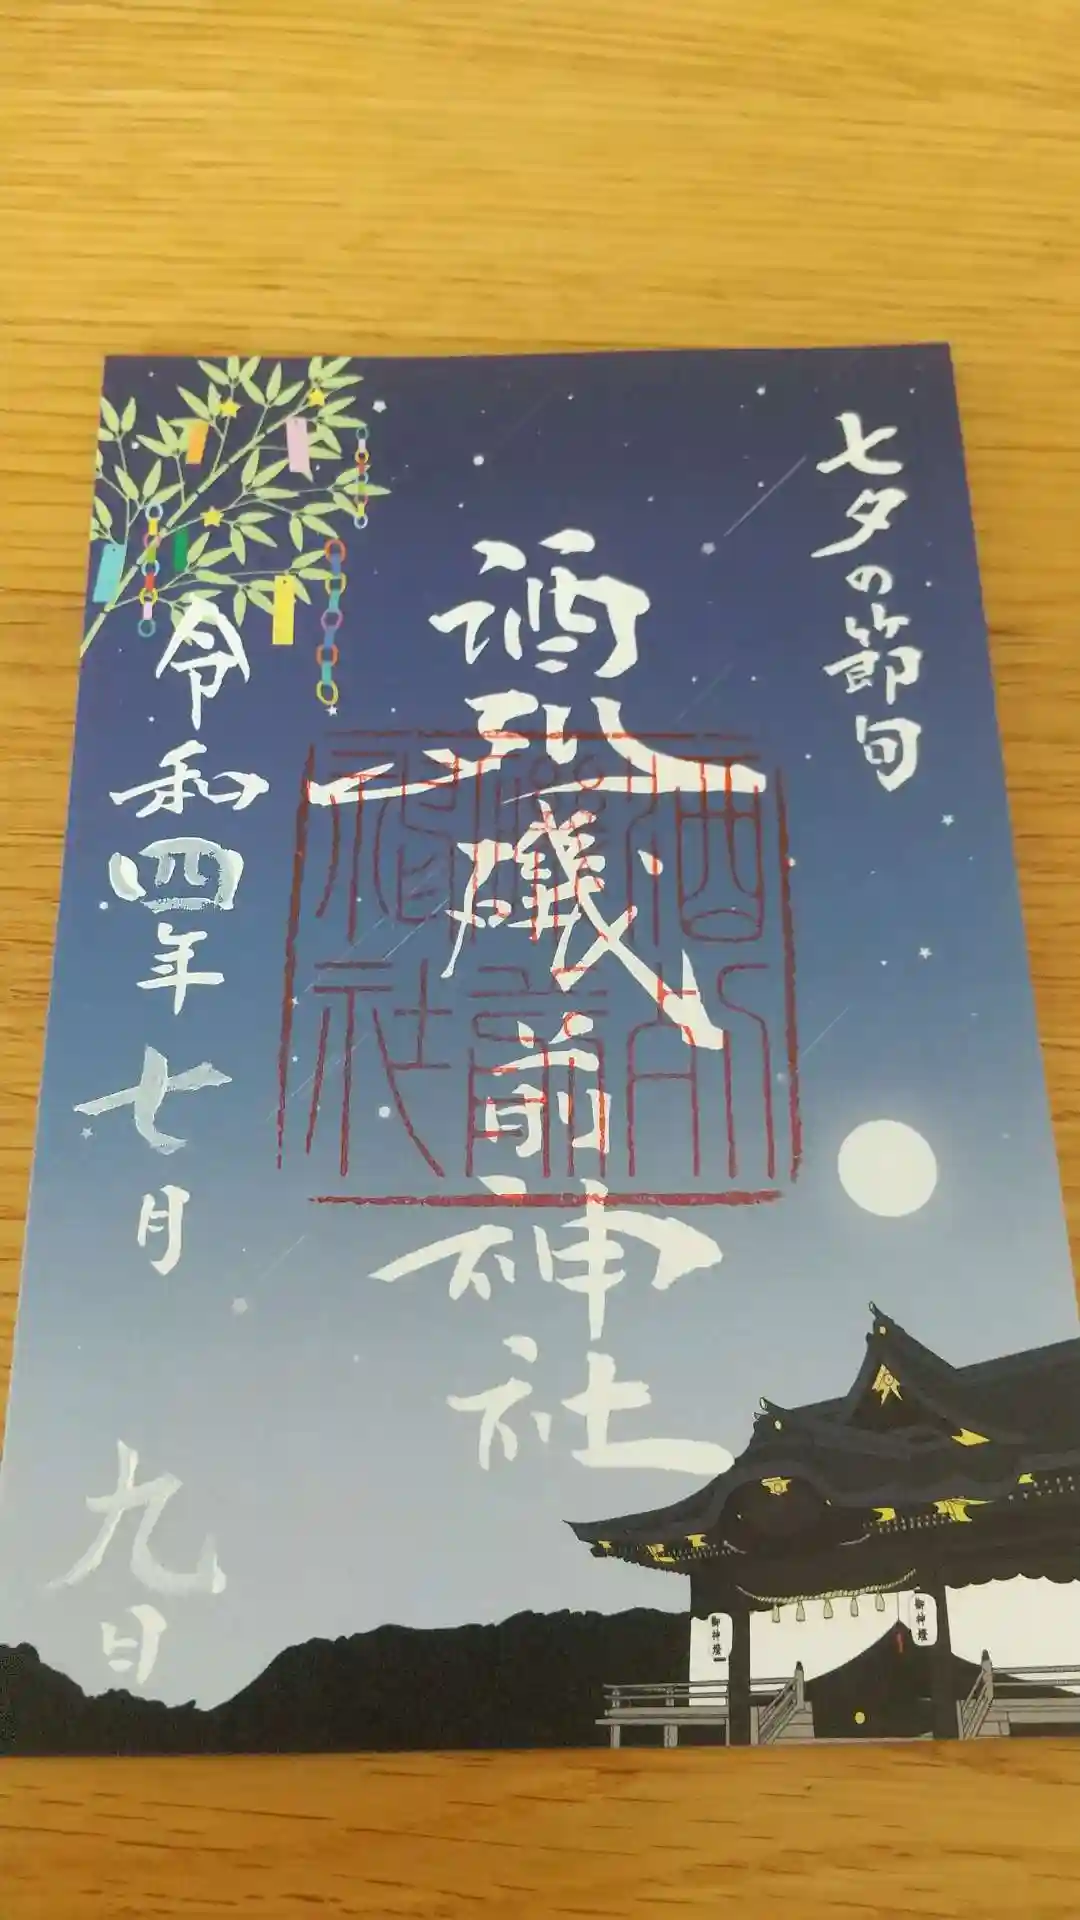 七夕の節句
酒列磯前神社
酒列
磯前
神社
令和四年七月九日
御神燈
御神燈